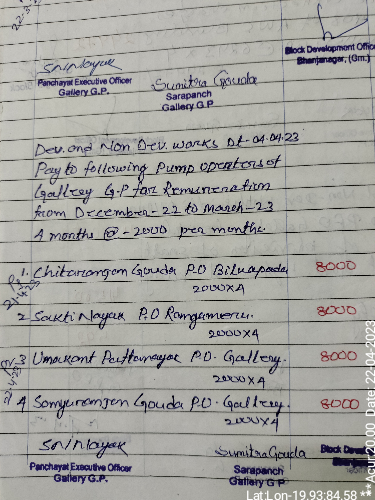 22.3
Block Development Offic
Bhanjanagar, (Gm.)
Panchayat Executive Officer
Gallery G.P.
Sumitra Gouda
Sarapanch
Gallery G.P
Dev. and Non Dev. works Dt-04.04.23
Pay to following Pump operators of
Gallrey G.P for Remuneration
from December-22 to March-23
4 months @ -2000 per months.
1. Chitaranjan Gouda P.O Biluapada 8000
2000×4
2 Sakti Nayak P.O Rangameru. 8000
2000×4
3 Umakant Pattanayak P.O. Gallery. 8000
2000×4
4 Somyuranjan Gouda P.O. Gallrey. 8000
2000×4
Sumitra Gouda
Block Deve
Panchayat Executive Officer
Gallery G.P.
Sarapanch
Gallery G.P
Lat:Lon-19.93:84.58
Acur:20.00 Date 22-04-2023